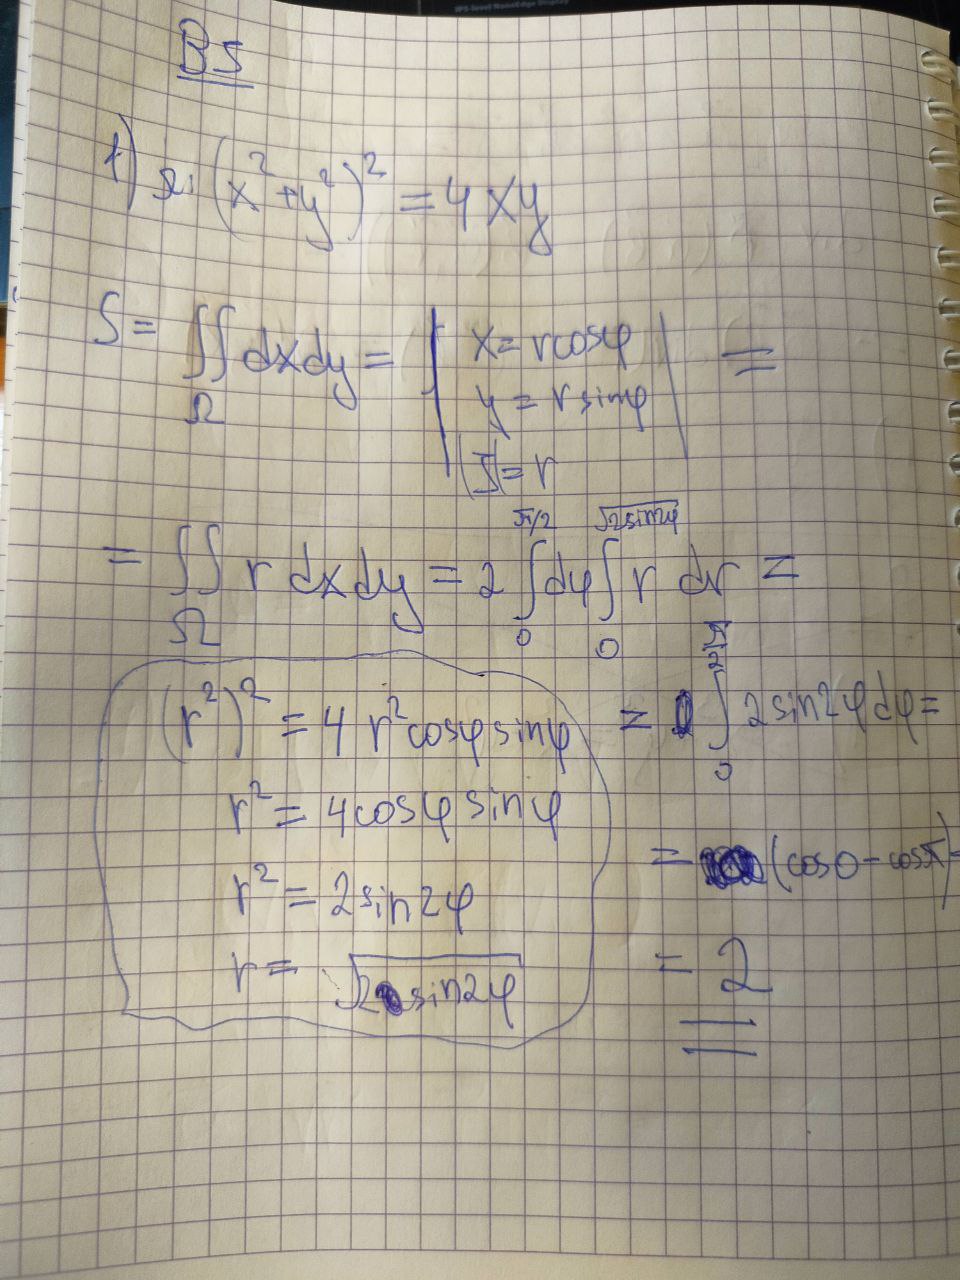 B5
1) Ω: (x²+y²)² = 4xy
S = ∬_Ω dxdy = | x = r cosφ
y = r sinφ
|J| = r | =
= ∬_Ω r dxdy = 2 ∫_0^{π/2} dφ ∫_0^{√(2sin2φ)} r dr =
(r²)² = 4 r² cosφ sinφ
r² = 4cosφ sinφ
r² = 2sin2φ
r = √(2sin2φ)
= ∫_0^{π/2} 2 sin2φ dφ =
= (cos0 - cosπ) =
= 2